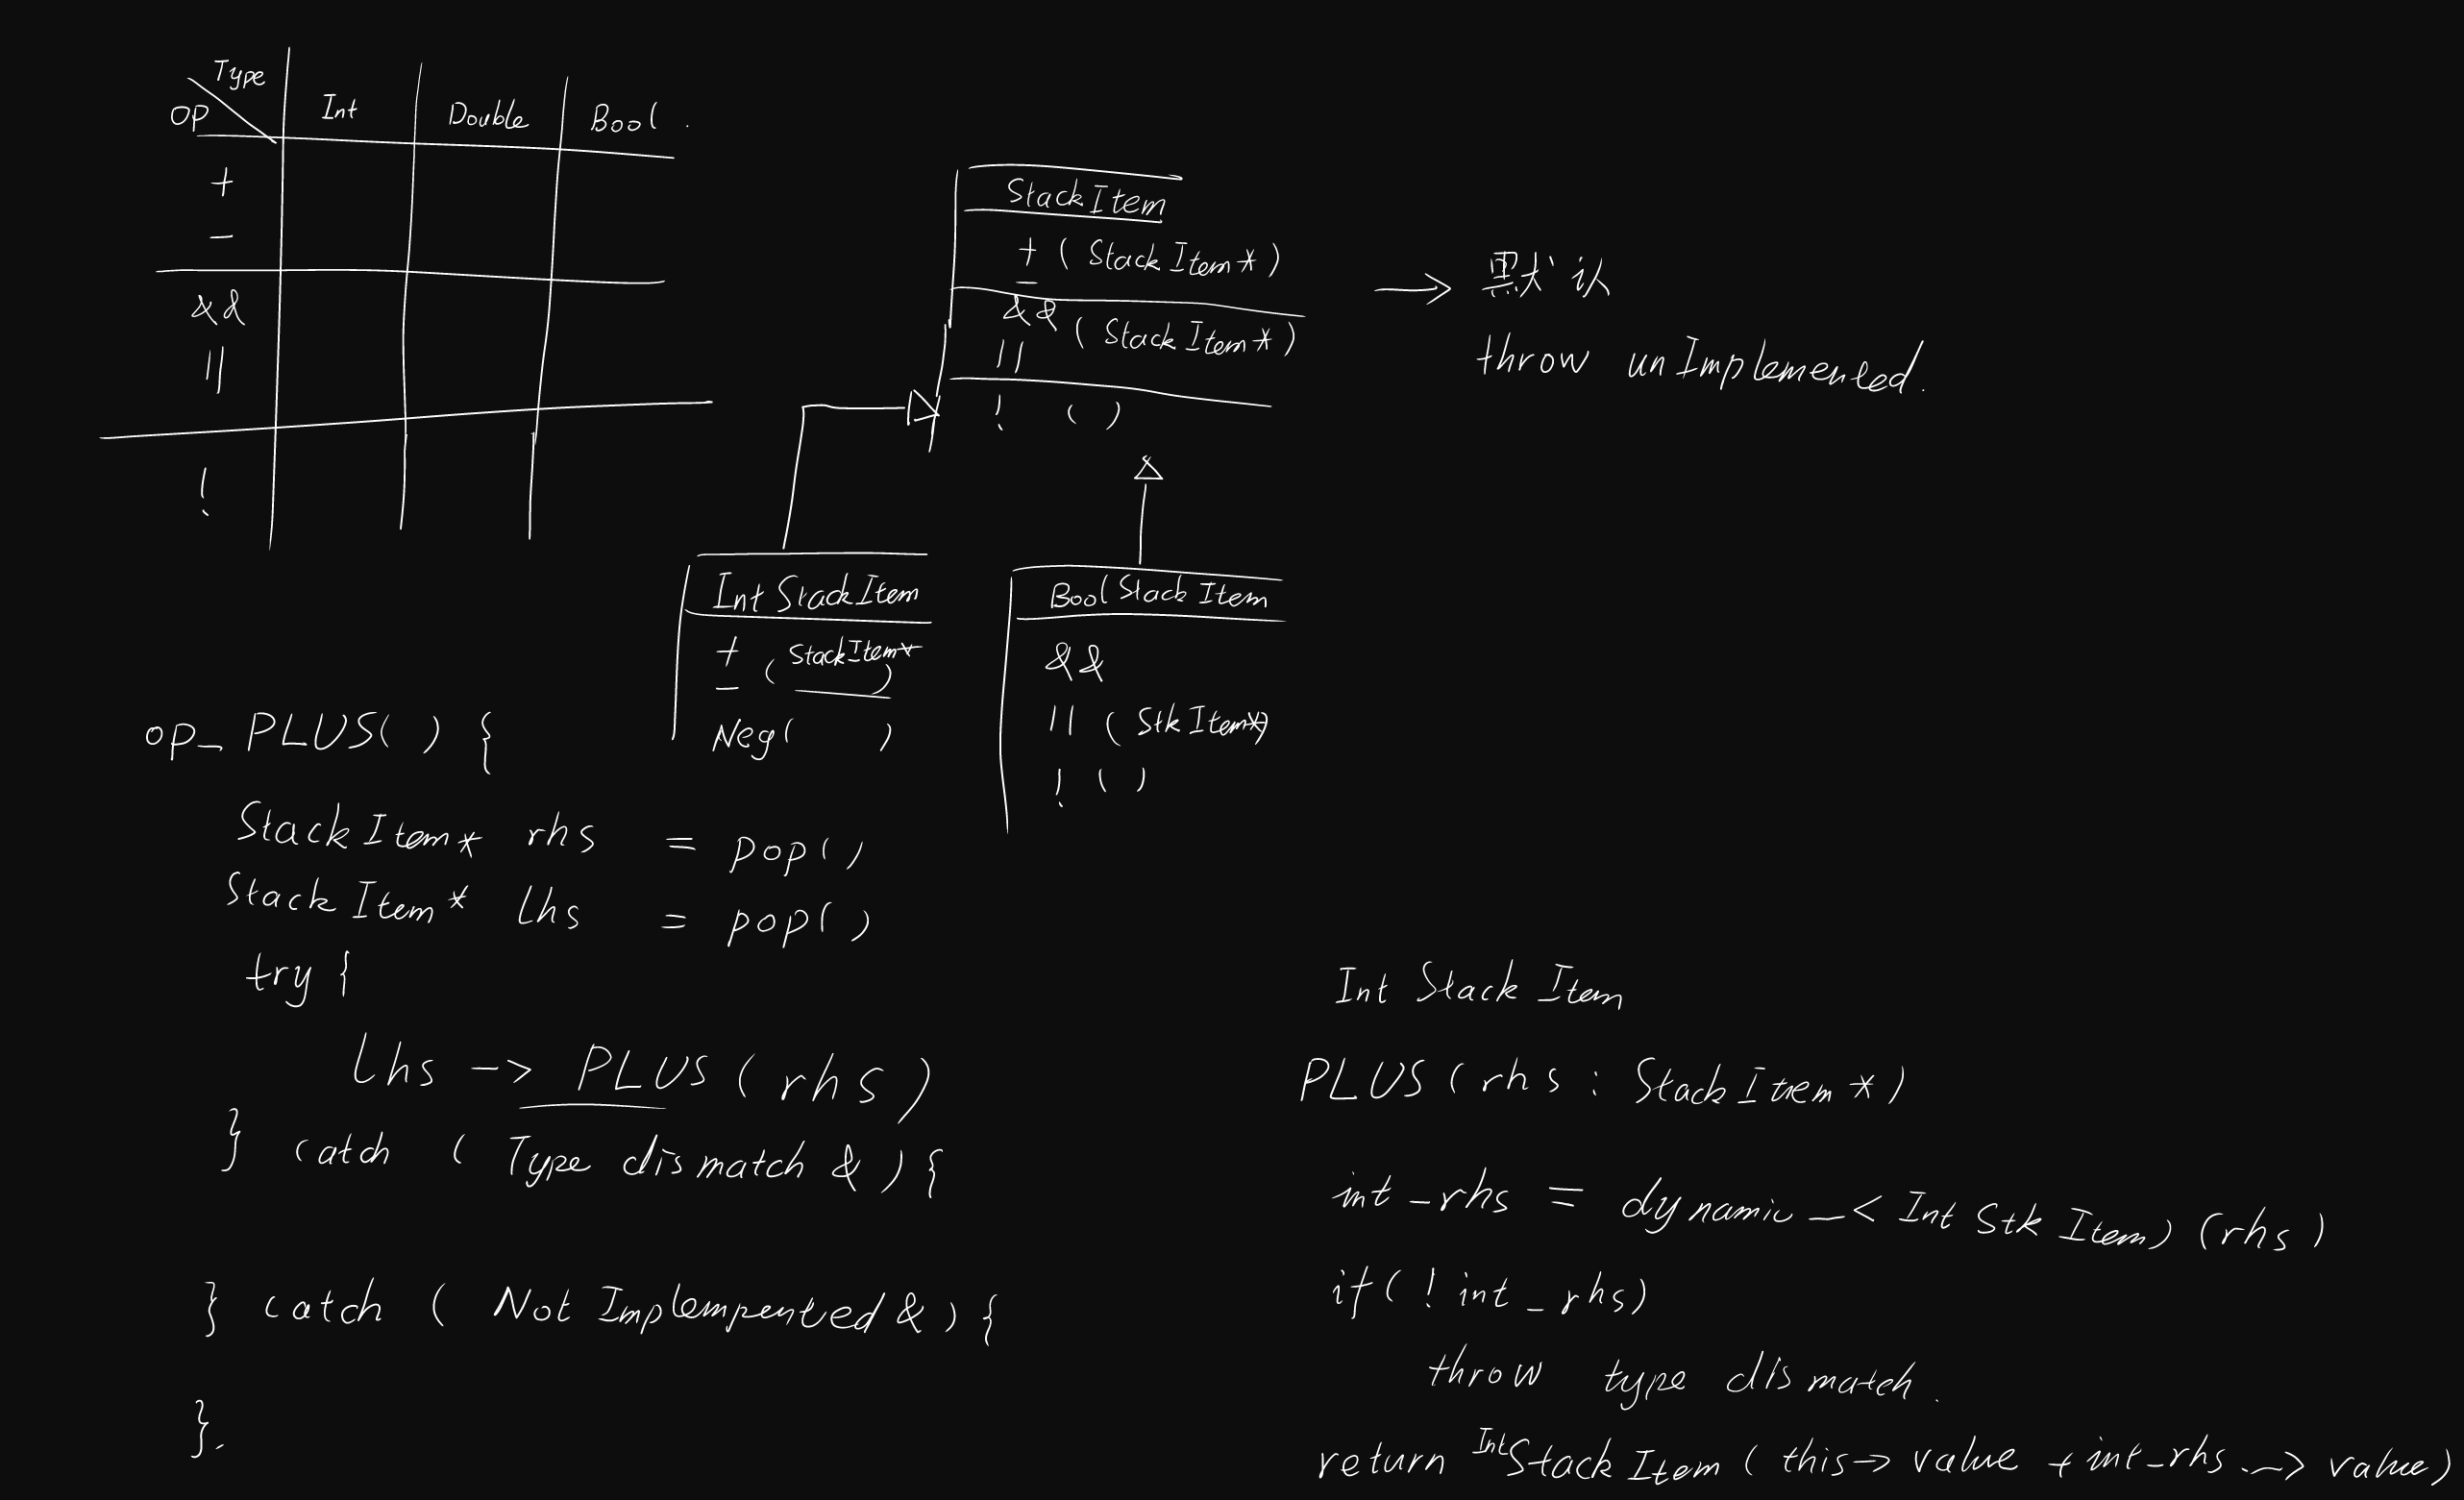 Type
OP Int Double Bool.
+
-
&&
||
!
StackItem
+ (StackItem*)
-
&& (StackItem*)
||
! ()
→ 默认
throw unImplemented.
IntStackItem
+ (StackItem*)
-
Neg( )
BoolStackItem
&&
|| (StkItem*)
! ()
op_PLUS() {
StackItem* rhs = pop()
StackItem* lhs = pop()
try {
lhs -> PLUS(rhs)
} catch (Type dismatch &) {
} catch (Not Implempented &) {
}.
Int Stack Item
PLUS(rhs : StackItem*)
int_rhs = dynamic_<Int Stk Item>(rhs)
if(!int_rhs)
throw type dismatch.
return IntStackItem(this-> value + int_rhs -> value)